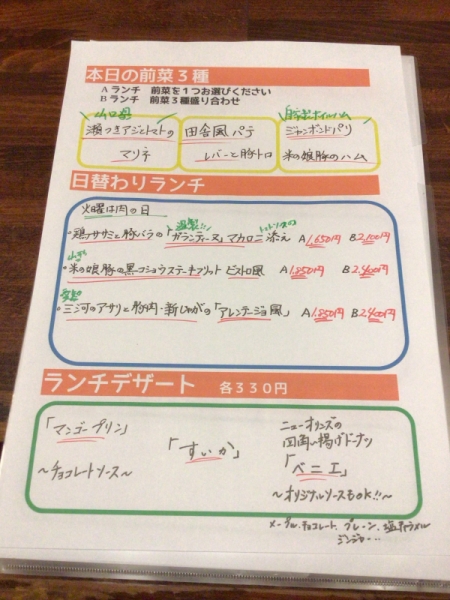 本日の前菜3種
Aランチ 前菜を1つお選びください
Bランチ 前菜3種盛り合わせ
山口県
瀬つきアジとトマトの
マリネ
田舎風パテ
レバーと豚トロ
自家製ボイルハム
ジャンボンドパリ
米の娘豚のハム
日替わりランチ
火曜は肉の日
・鶏ササミと豚バラの「ガランティーヌ」マカロニ添え A1,650円 B2,100円
山形
・米の娘豚の黒コショウステーキフリット ビストロ風 A1,850円 B2,400円
愛知
・三河のアサリと豚肉・新じゃがの「アレンテージョ風」 A1,850円 B2,400円
ランチデザート 各330円
「マンゴープリン」
〜チョコレートソース〜
「すいか」
ニューオリンズの
四角い揚げドーナツ
「ベニエ」
〜オリジナルソースもOK!!〜
メープル、チョコレート、プレーン、塩キャラメル
ジンジャー...